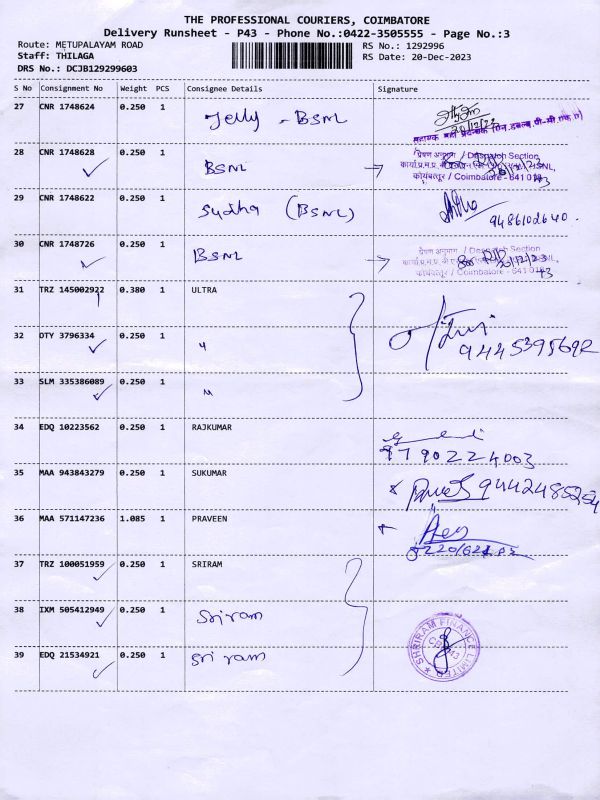 THE PROFESSIONAL COURIERS, COIMBATORE
Delivery Runsheet - P43 - Phone No.:0422-3505555 - Page No.:3
Route: METUPALAYAM ROAD
Staff: THILAGA
DRS No.: DCJB129299603
RS No.: 1292996
RS Date: 20-Dec-2023
S No Consignment No Weight PCS Consignee Details Signature
27 CNR 1748624 0.250 1 Jelly - BSNL
20/12/23
28 CNR 1748628 0.250 1 BSNL
प्रेषण अनुभाग / Despatch Section
कोयंबत्तूर / Coimbatore - 641 043
29 CNR 1748622 0.250 1 Sudha (BSNL)
9486102640.
30 CNR 1748726 0.250 1 BSNL
प्रेषण अनुभाग / Despatch Section
कोयंबत्तूर / Coimbatore - 641 043
31 TRZ 145002922 0.380 1 ULTRA
32 DTY 3796334 0.250 1 "
33 SLM 335386089 0.250 1 "
34 EDQ 10223562 0.250 1 RAJKUMAR
9790224003
35 MAA 943843279 0.250 1 SUKUMAR
36 MAA 571147236 1.085 1 PRAVEEN
37 TRZ 100051959 0.250 1 SRIRAM
38 IXM 505412949 0.250 1 Sriram
39 EDQ 21534921 0.250 1 Sriram
SHRIRAM FINANCE LIMITED